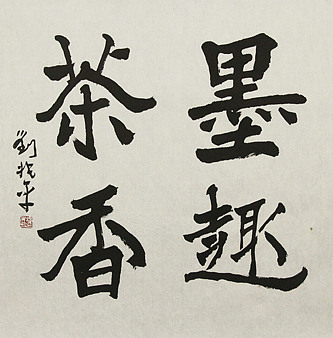 墨趣
茶香